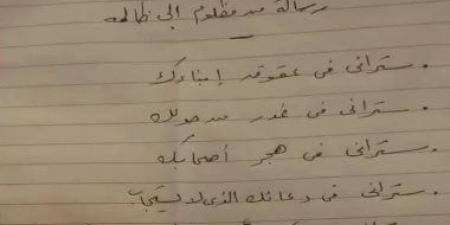 رسالة من مظلوم إلى ظالمه
. ستراني في عقوق إبنائك
. ستراني في غدر من حولك
. ستراني في هجر أصحابك
. ستراني في دعائك الذي لا يستجاب